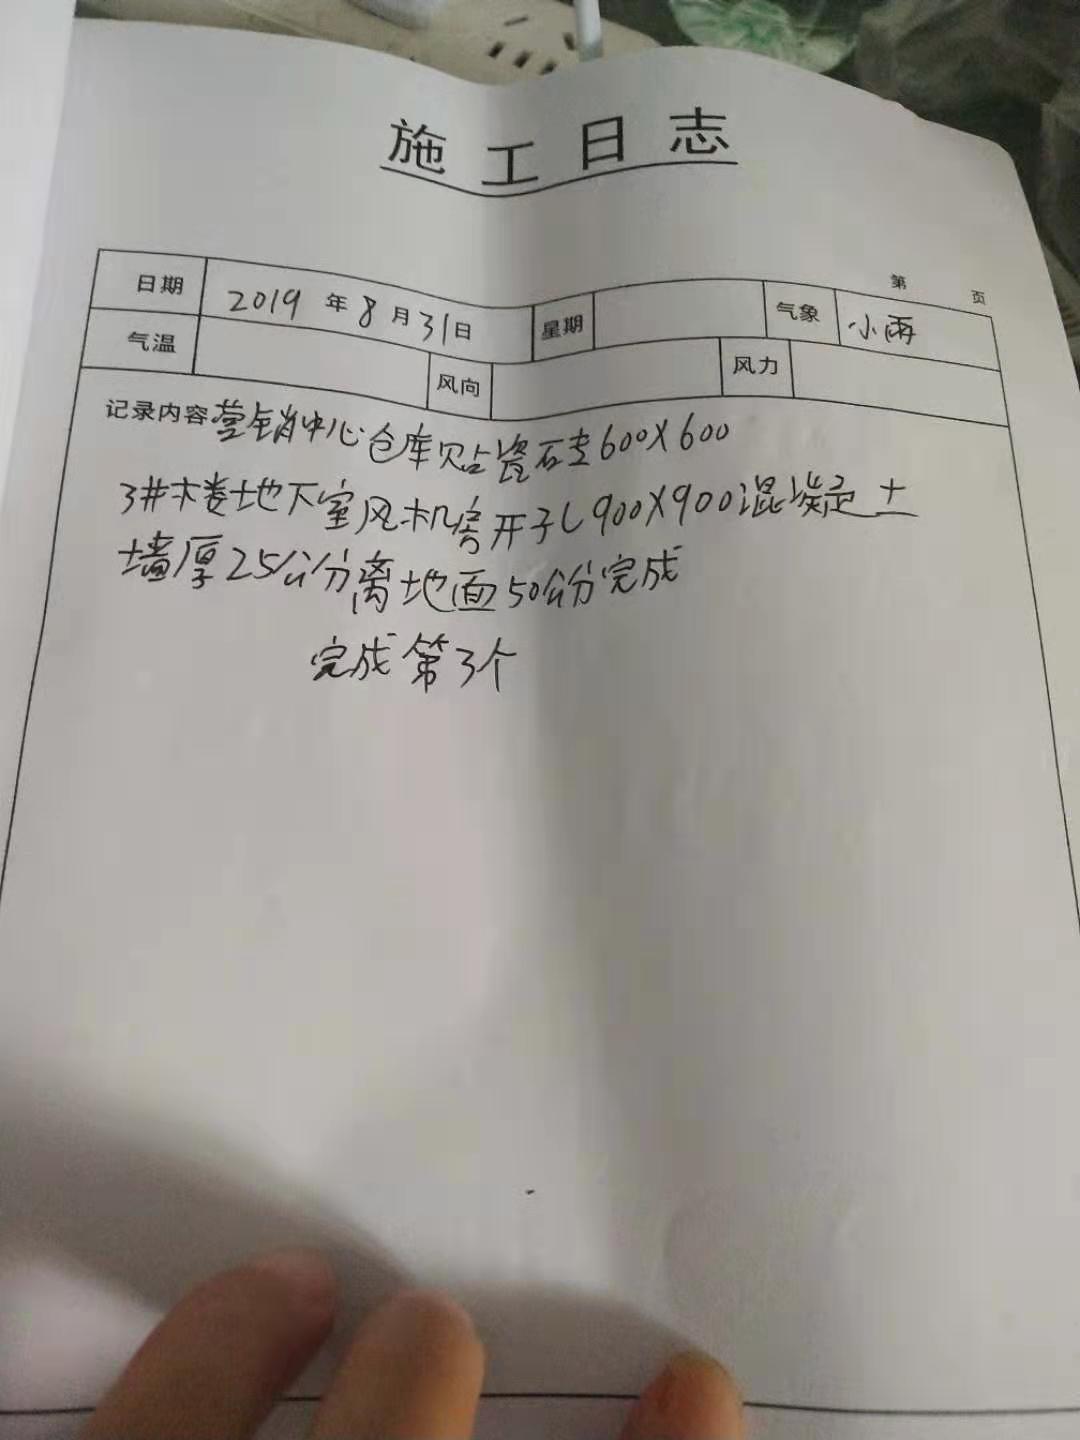 施工日志
第 页
日期 2019年8月31日 星期 气象 小雨
气温 风向 风力
记录内容 营销中心仓库贴瓷砖600X600
3#楼地下室风机房开孔900X900混凝土
墙厚25公分离地面50公分完成
完成第3个